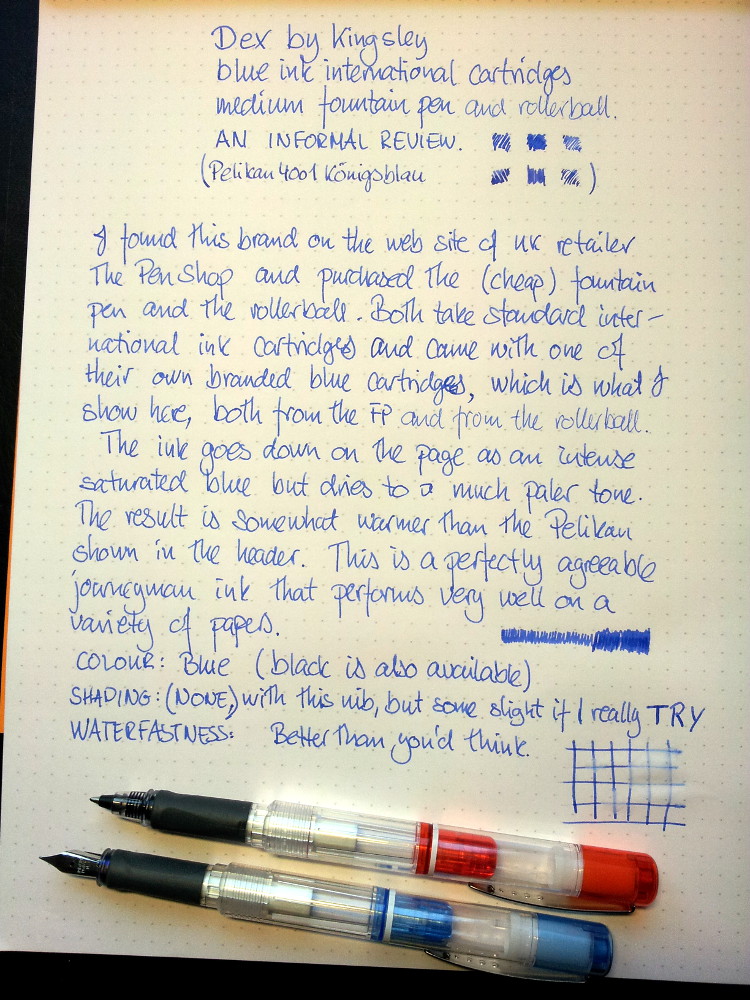 Dex by Kingsley
blue ink international cartridges
medium fountain pen and rollerball.
AN INFORMAL REVIEW.
(Pelikan 4001 Königsblau )
I found this brand on the web site of UK retailer
The Pen Shop and purchased the (cheap) fountain
pen and the rollerball. Both take standard inter-
national ink cartridges and came with one of
their own branded blue cartridges, which is what I
show here, both from the FP and from the rollerball.
The ink goes down on the page as an intense
saturated blue but dries to a much paler tone.
The result is somewhat warmer than the Pelikan
shown in the header. This is a perfectly agreeable
journeyman ink that performs very well on a
variety of papers.
COLOUR: Blue (black is also available)
SHADING: (NONE,) with this nib, but some slight if I really TRY
WATERFASTNESS: Better than you'd think.